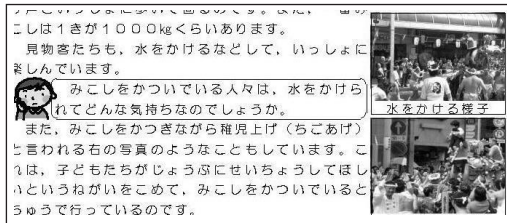 こしは１きが１０００㎏くらいあります。
見物客たちも，水をかけるなどして，いっしょに
楽しんでいます。
みこしをかついでいる人々は，水をかけら
れてどんな気持ちなのでしょうか。
また，みこしをかつぎながら稚児上げ（ちごあげ）
と言われる右の写真のようなこともしています。こ
れは，子どもたちがじょうぶにせいちょうしてほし
いというねがいをこめて，みこしをかついでいると
ちゅうで行っているのです。
水をかける様子